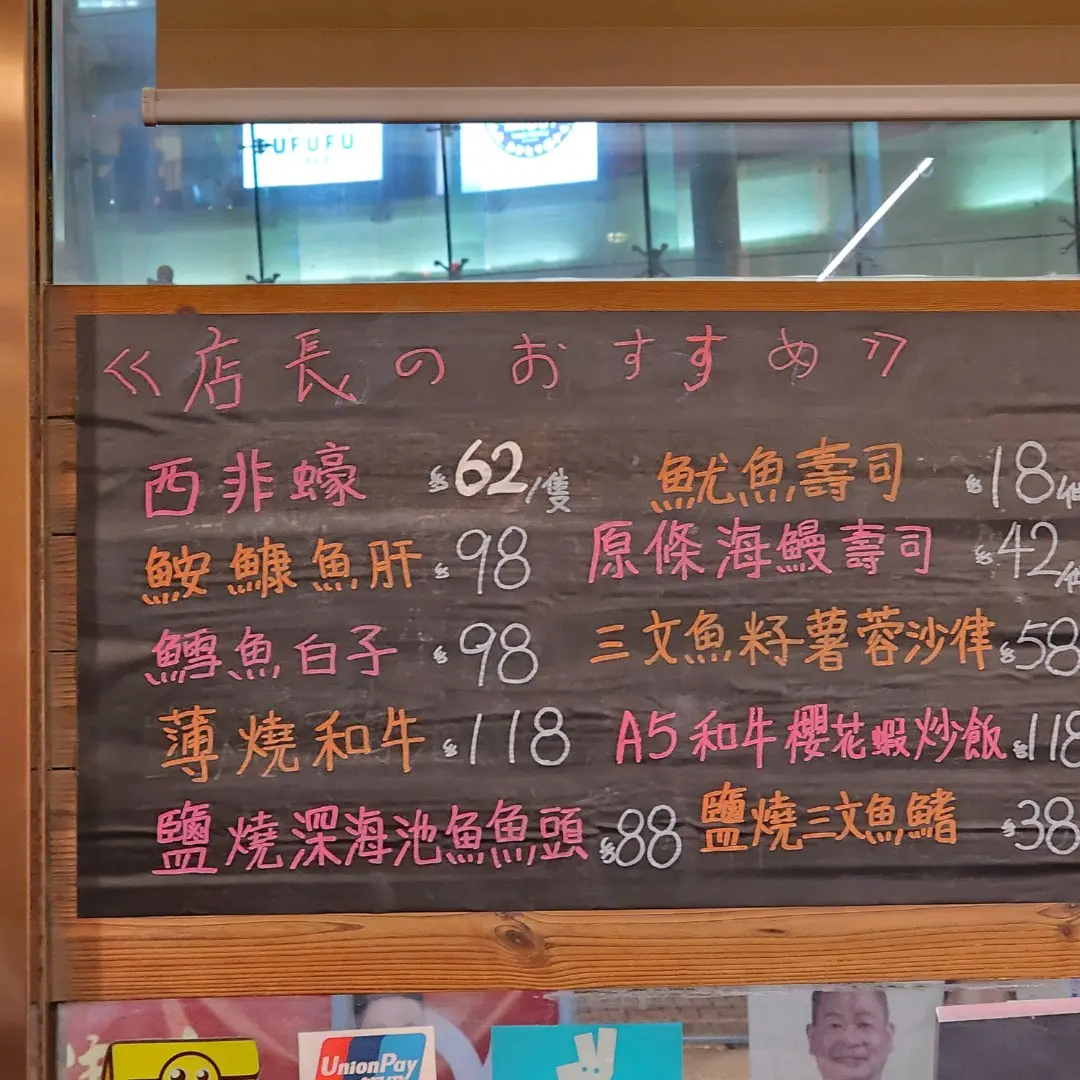 UFUFU
≪店長のおすすめ≫
西非蠔 $62/隻
魷魚壽司 $18/個
鮟鱇魚肝 $98
原條海鰻壽司 $42/個
鱈魚白子 $98
三文魚籽薯蓉沙律 $58
薄燒和牛 $118
A5和牛櫻花蝦炒飯 $118
鹽燒深海池魚魚頭 $88
鹽燒三文魚鰭 $38
UnionPay